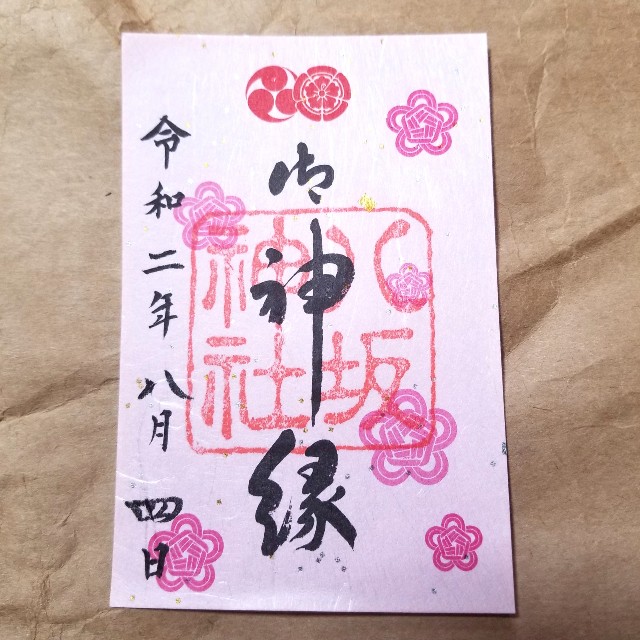 御神縁
八坂
神社
令和二年八月四日